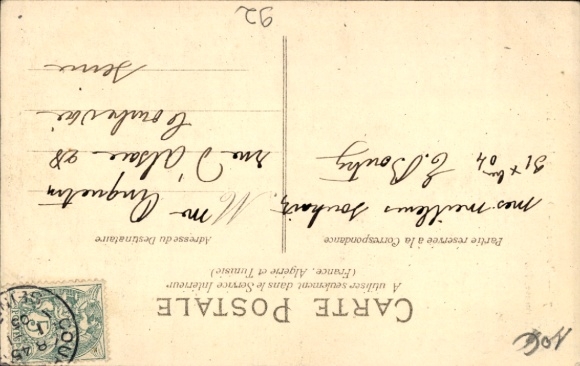 CARTE POSTALE
A utiliser seulement dans le Service Intérieur
(France, Algerie et Tunisie)
Partie réservée à la Correspondance
mes meilleurs souhaits
31 Xbre 04 E. Bouty
Adresse du Destinataire
Mr Anqueton
rue d'alsace 28
Courbevoie
Seine
COU
92